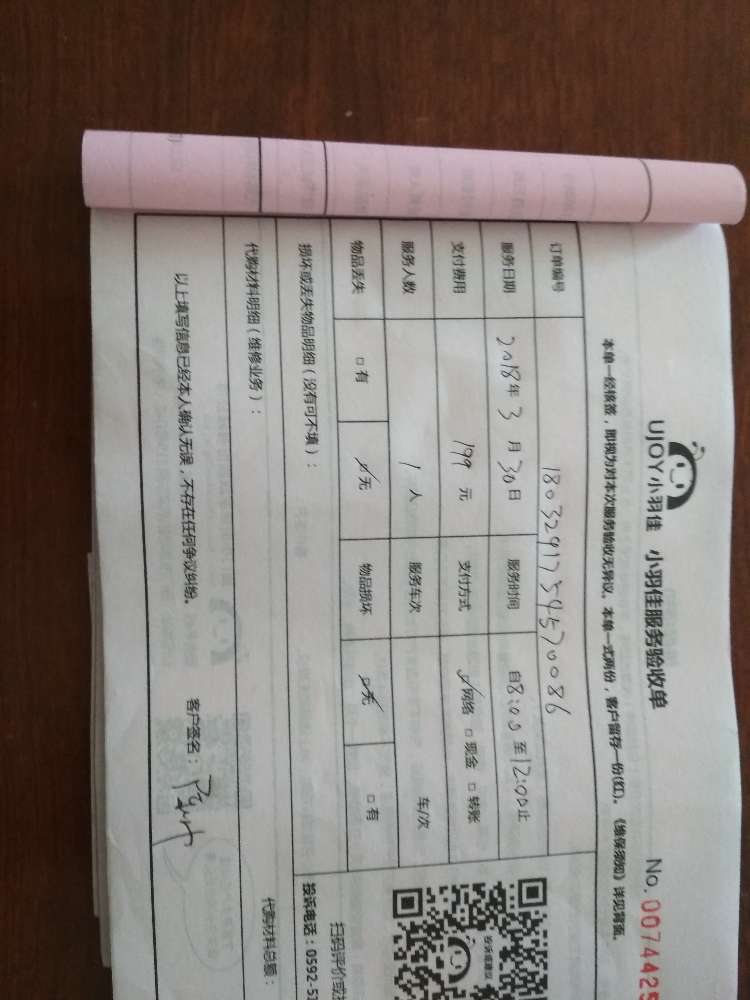 UJOY小羽佳 小羽佳服务验收单 No. 0074425
本单一经核签，即视为对本次服务验收无异议。本单一式两份，客户留存一份(红)。《维保须知》详见背面。
订单编号 1803291734570086
服务日期 2018年3月30日 服务时间 自8:00至12:00止
支付费用 199元 支付方式 ☑网络 □现金 □转账
服务人数 1人 服务车次 车/次
物品丢失 □有 ☑无 物品损坏 ☑无 □有
损坏或丢失物品明细（没有可不填）：
代购材料明细（维修业务）： 代购材料总额：
以上填写信息已经本人确认无误，不存在任何争议纠纷。 客户签名：
投诉或建议
扫码评价或
投诉电话：0592-5